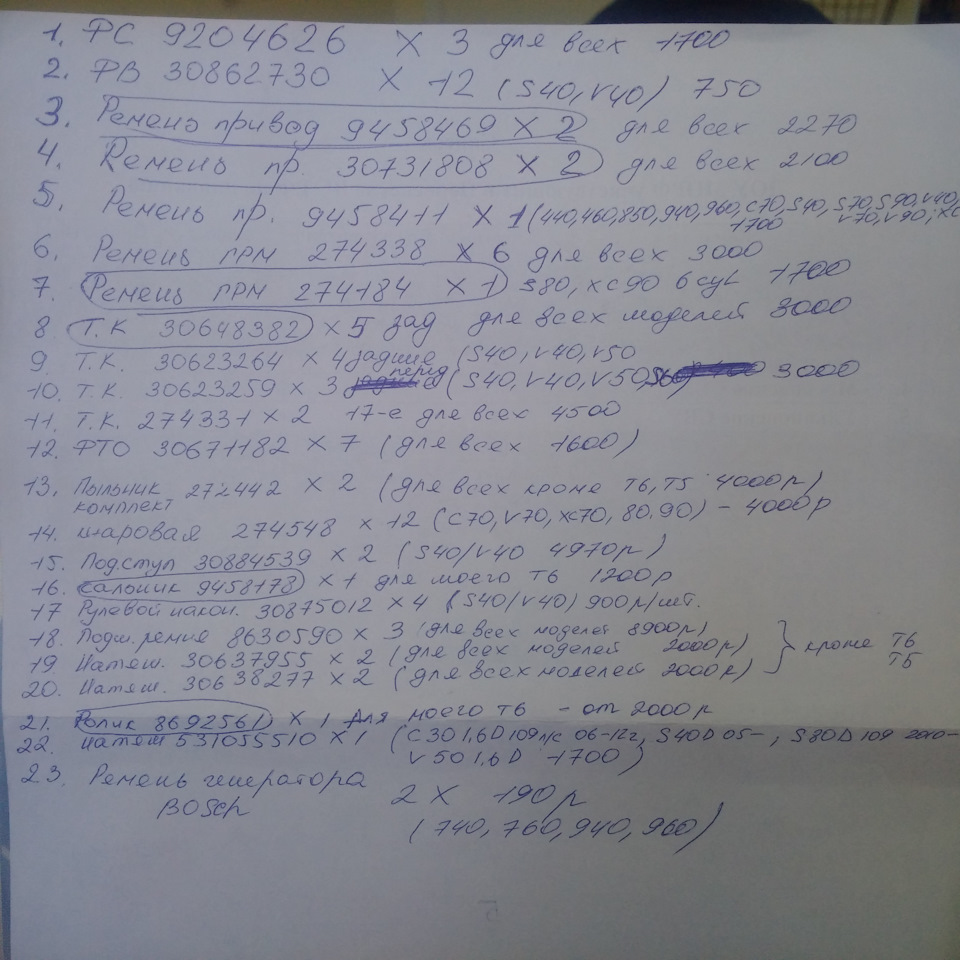 1. ФС 9204626 X 3 для всех 1700
2. ФВ 30862730 X 12 (S40, V40) 750
3. Ремень привод 9458469 X 2 для всех 2270
4. Ремень пр. 30731808 X 2 для всех 2100
5. Ремень пр. 9458411 X 1 (440, 460, 850, 940, 960, C70, S40, S70, S90, V40,
1700 V70, V90, XC
6. Ремень ГРМ 274338 X 6 для всех 3000
7. Ремень ГРМ 274184 X 1 S80, XC90 6 сyl 1700
8 Т.К 30648382 X 5 зад для всех моделей 3000
9 Т.К. 30623264 X 4 задние (S40, V40, V50
10. Т.К. 30623259 X 3 перед (S40, V40, V50 3000
11. Т.К. 274331 X 2 17-е для всех 4500
12. ФТО 30671182 X 7 (для всех 1600)
13. Пыльник 272442 X 2 (для всех кроме Т6, Т5 4000р)
комплект
14. шаровая 274548 X 12 (C70, V70, XC70, 80.90) - 4000р
15. Подступ 30884539 X 2 (S40/V40 4970р)
16. сальник 9458178 X 1 для моего Т6 1200р
17 Рулевой након. 30875012 X 4 (S40/V40) 900р/шт.
18. Подш. ремня 8630590 X 3 (для всех моделей 8900р)
19 Натяж. 30637955 X 2 (для всех моделей 2000р) } кроме Т6
Т5
20. Натяж. 30638277 X 2 (для всех моделей 2000р)
21. Ролик 8692561 X 1 для моего Т6 - от 2000р
22. натяж 531055510 X 1 (C30 1,6D 109 л/с 06-12г, S40D 05-, S80D 109 2010-
V50 1,6D 1700)
23. Ремень генератора 2 X 190р
BOSCh (740, 760, 940, 960)